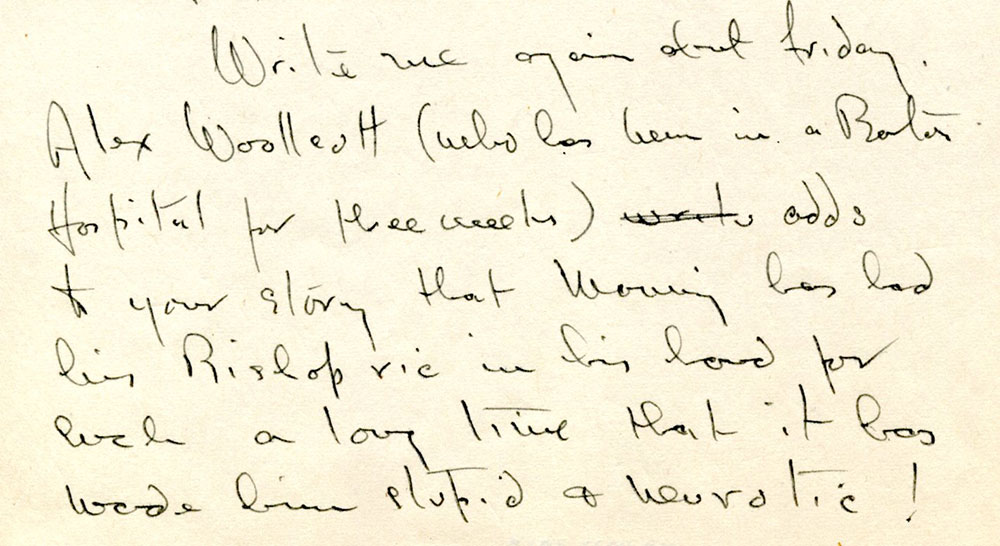 Write me again about friday.
Alex Woollcott (who has been in a Boston
Hospital for three weeks) writes adds
to your story that Moving has had
his Bishopric in his head for
such a long time that it has
made him stupid & neurotic!